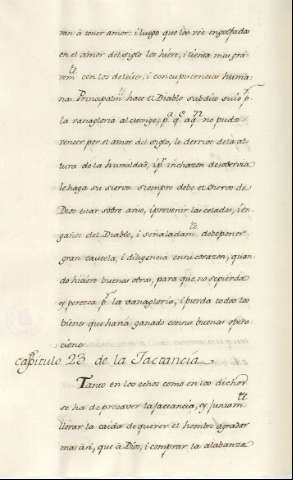 ran à tener amor: i luego que los vèe engolfados
en el amor del siglo los hiere, i tienta mui grá-
vem.te con los deleites, i concupiscencias huma-
nas. Principalm.te hace el Diablo subdito suio p.r
la vanagloria al siervo, p.a q.e aq.n no pudo
vencer por el amor del siglo, le derroc de la al-
tura de la humildad, i p.r inchazon de sobervia
le haga su siervo. siempre debe el siervo de
Dios estar sobre aviso, i prevenir las celadas, i en-
gaños del Diablo, i señaladam.te debe poner
gran cautela, i diligencia en su corazon, quan-
do hiciere buenas obras, para que no se pierda
y perezca p.r la vanagloria, i pierda todos los
bienes que havia ganado con sus buenos exer-
cicios.
Capitulo 23 de la Jactancia
Tanto en los echos como en los dichos
se ha de precaver la jactancia, y juntam.te
llorar la caida de querer el hombre agradar
mas à sì, que à Dios, i comprar la alabanza